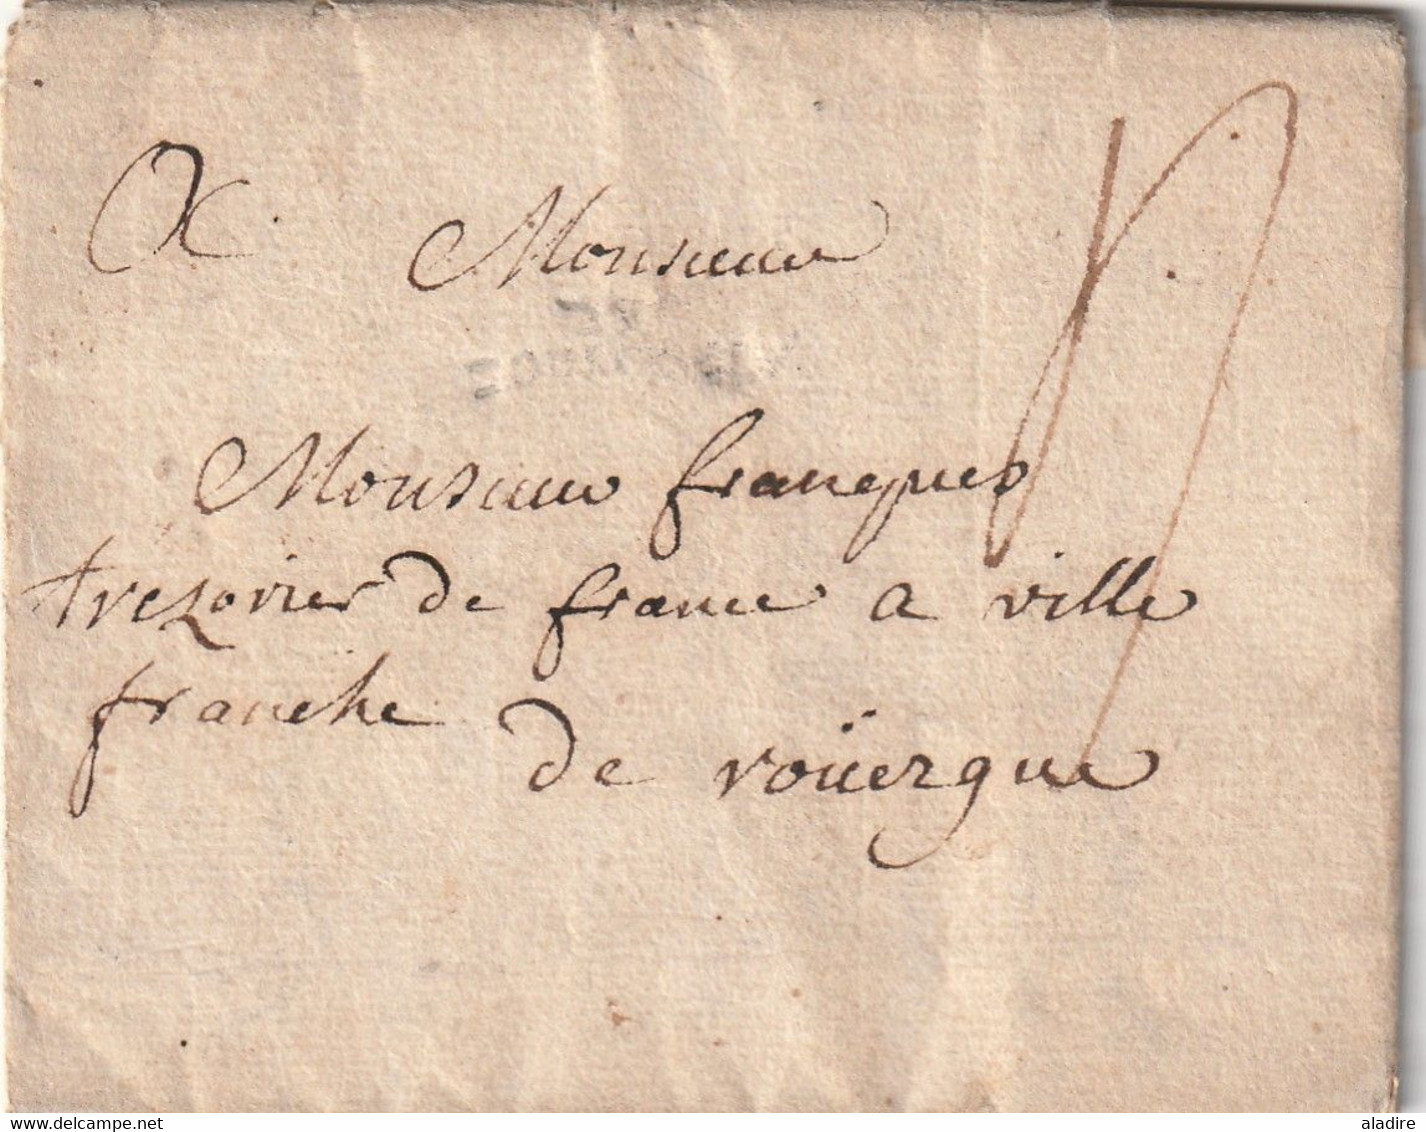 A Monsieur
Monsieur franques
trezorier de france a ville
franche
de roüergue
www.delcampe.net
aladire